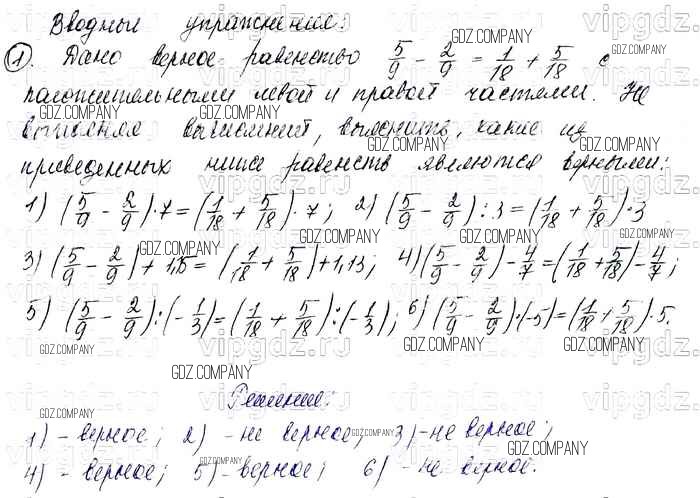 Вводные упражнения:
1. Дано верное равенство 5/9 - 2/9 = 1/18 + 5/18 с
положительными левой и правой частями. Не
выполняя вычислений, выяснить, какие из
приведенных ниже равенств являются верными:
1) (5/9 - 2/9)·7 = (1/18 + 5/18)·7; 2) (5/9 - 2/9):3 = (1/18 + 5/18)·3
3) (5/9 - 2/9) + 1,15 = (1/18 + 5/18) + 1,13; 4) (5/9 - 2/9) - 4/7 = (1/18 + 5/18) - 4/7;
5) (5/9 - 2/9):(-1/3) = (1/18 + 5/18):(-1/3); 6) (5/9 - 2/9)·(-5) = (1/18 + 5/18)·5.
Решение:
1) - верное; 2) - не верное; 3) - не верное;
4) - верное; 5) - верное; 6) - не верное.
GDZ.COMPANY
vipgdz.ru